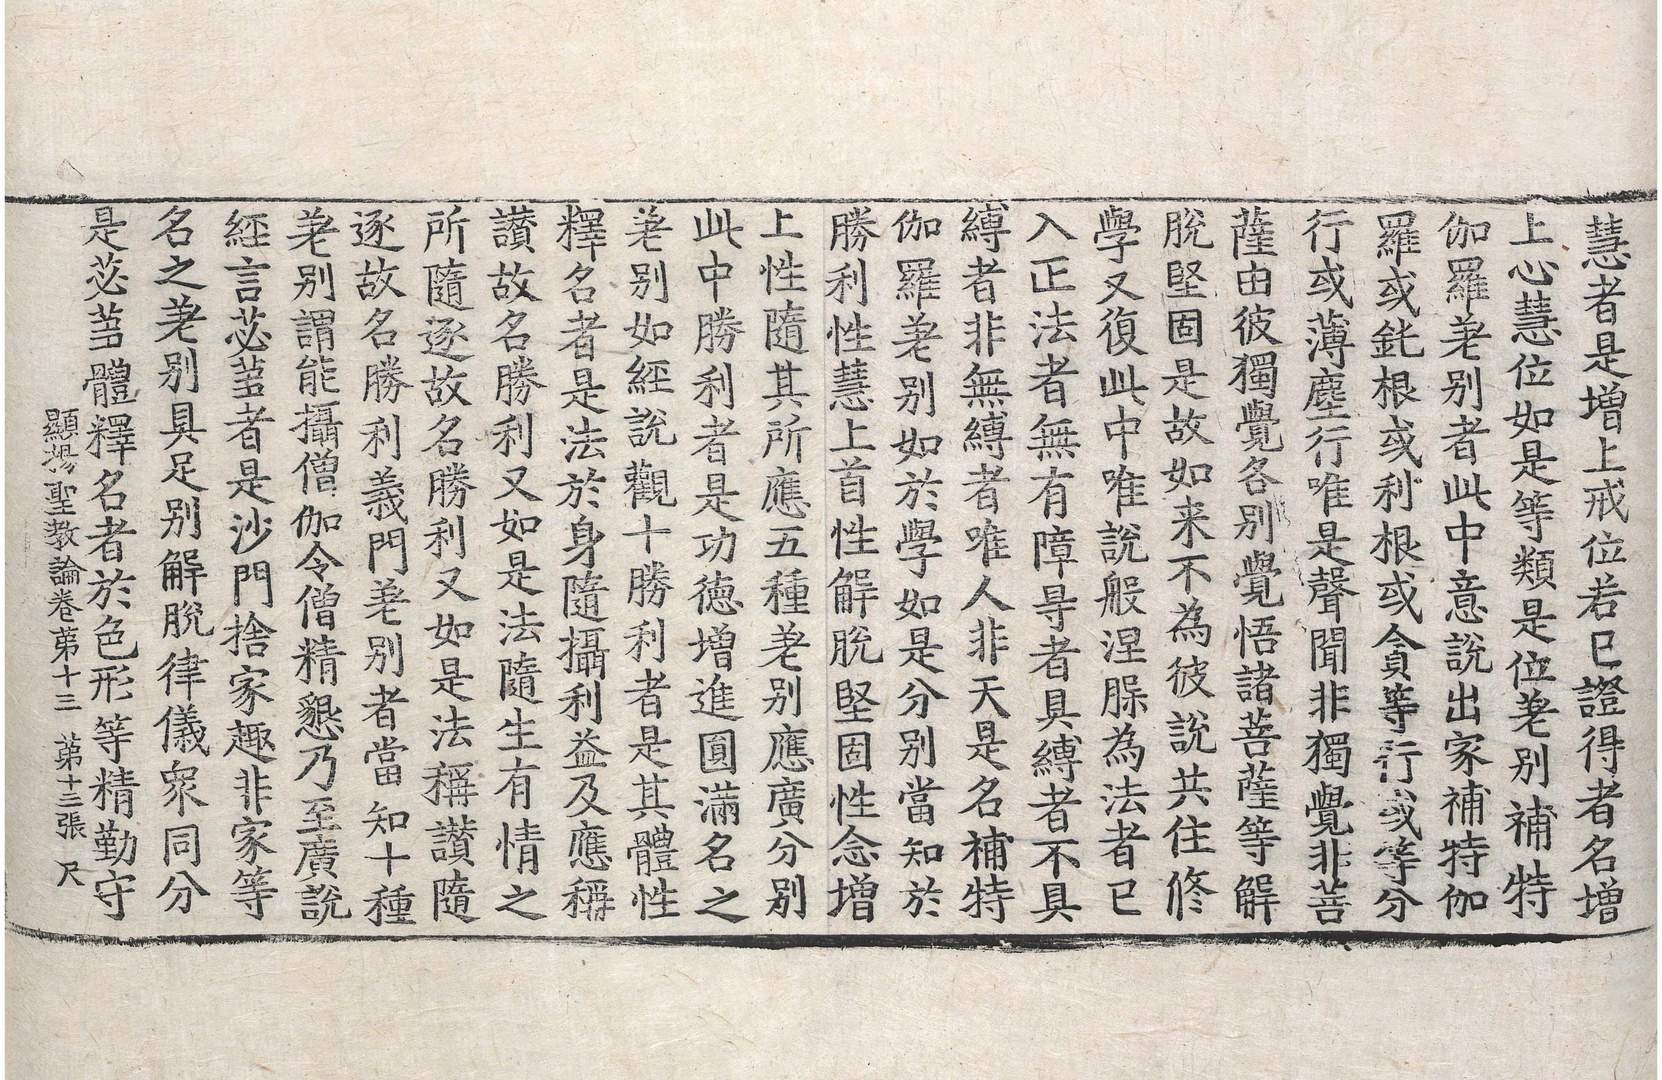 慧者是增上戒位若已證得者名增
上心慧位如是等類是位差別補特
伽羅差別者此中意說出家補特伽
羅或鈍根或利根或貪等行或等分
行或薄塵行唯是聲聞非獨覺非菩
薩由彼獨覺各別覺悟諸菩薩等解
脫堅固是故如来不為彼說共住修
學又復此中唯說般涅腺為法者已
入正法者無有障㝵者具縛者不具
縛者非無縛者唯人非天是名補特
伽羅差別如於學如是分別當知於
勝利性慧上首性解脫堅固性念增
上性隨其所應五種差別應廣分別
此中勝利者是功德增進圓滿名之
差別如經說觀十勝利者是其體性
釋名者是法於身隨攝利益及應稱
讃故名勝利又如是法隨生有情之
所隨逐故名勝利又如是法稱讃隨
逐故名勝利義門差別者當知十種
差別謂能攝僧伽令僧精懇乃至廣說
經言苾蒭者是沙門捨家趣非家等
名之差別具足別解脫律儀眾同分
是苾蒭體釋名者於色形等精勤守
顯揚聖教論卷第十三　第十三張　尺